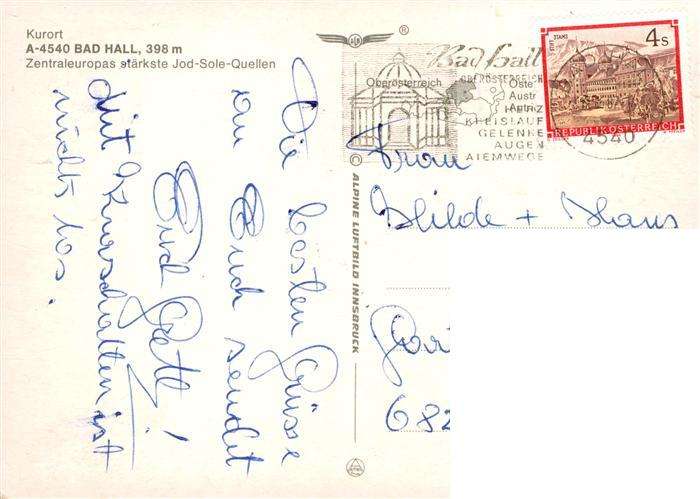 Kurort
A-4540 BAD HALL, 398 m
Zentraleuropas stärkste Jod-Sole-Quellen
Die besten Grüsse
an Euch sendet
Eud Gretl!
Mit Kurschatten ist
nichts los.
ALPINE LUFTBILD INNSBRUCK
Oberösterreich
Bad Hall
OBERÖSTERREICH
HERZ
KREISLAUF
GELENKE
AUGEN
ATEMWEGE
4540
STIFT STAMS
4 S
REPUBLIK ÖSTERREICH
Frau
Hilde + Hans
682